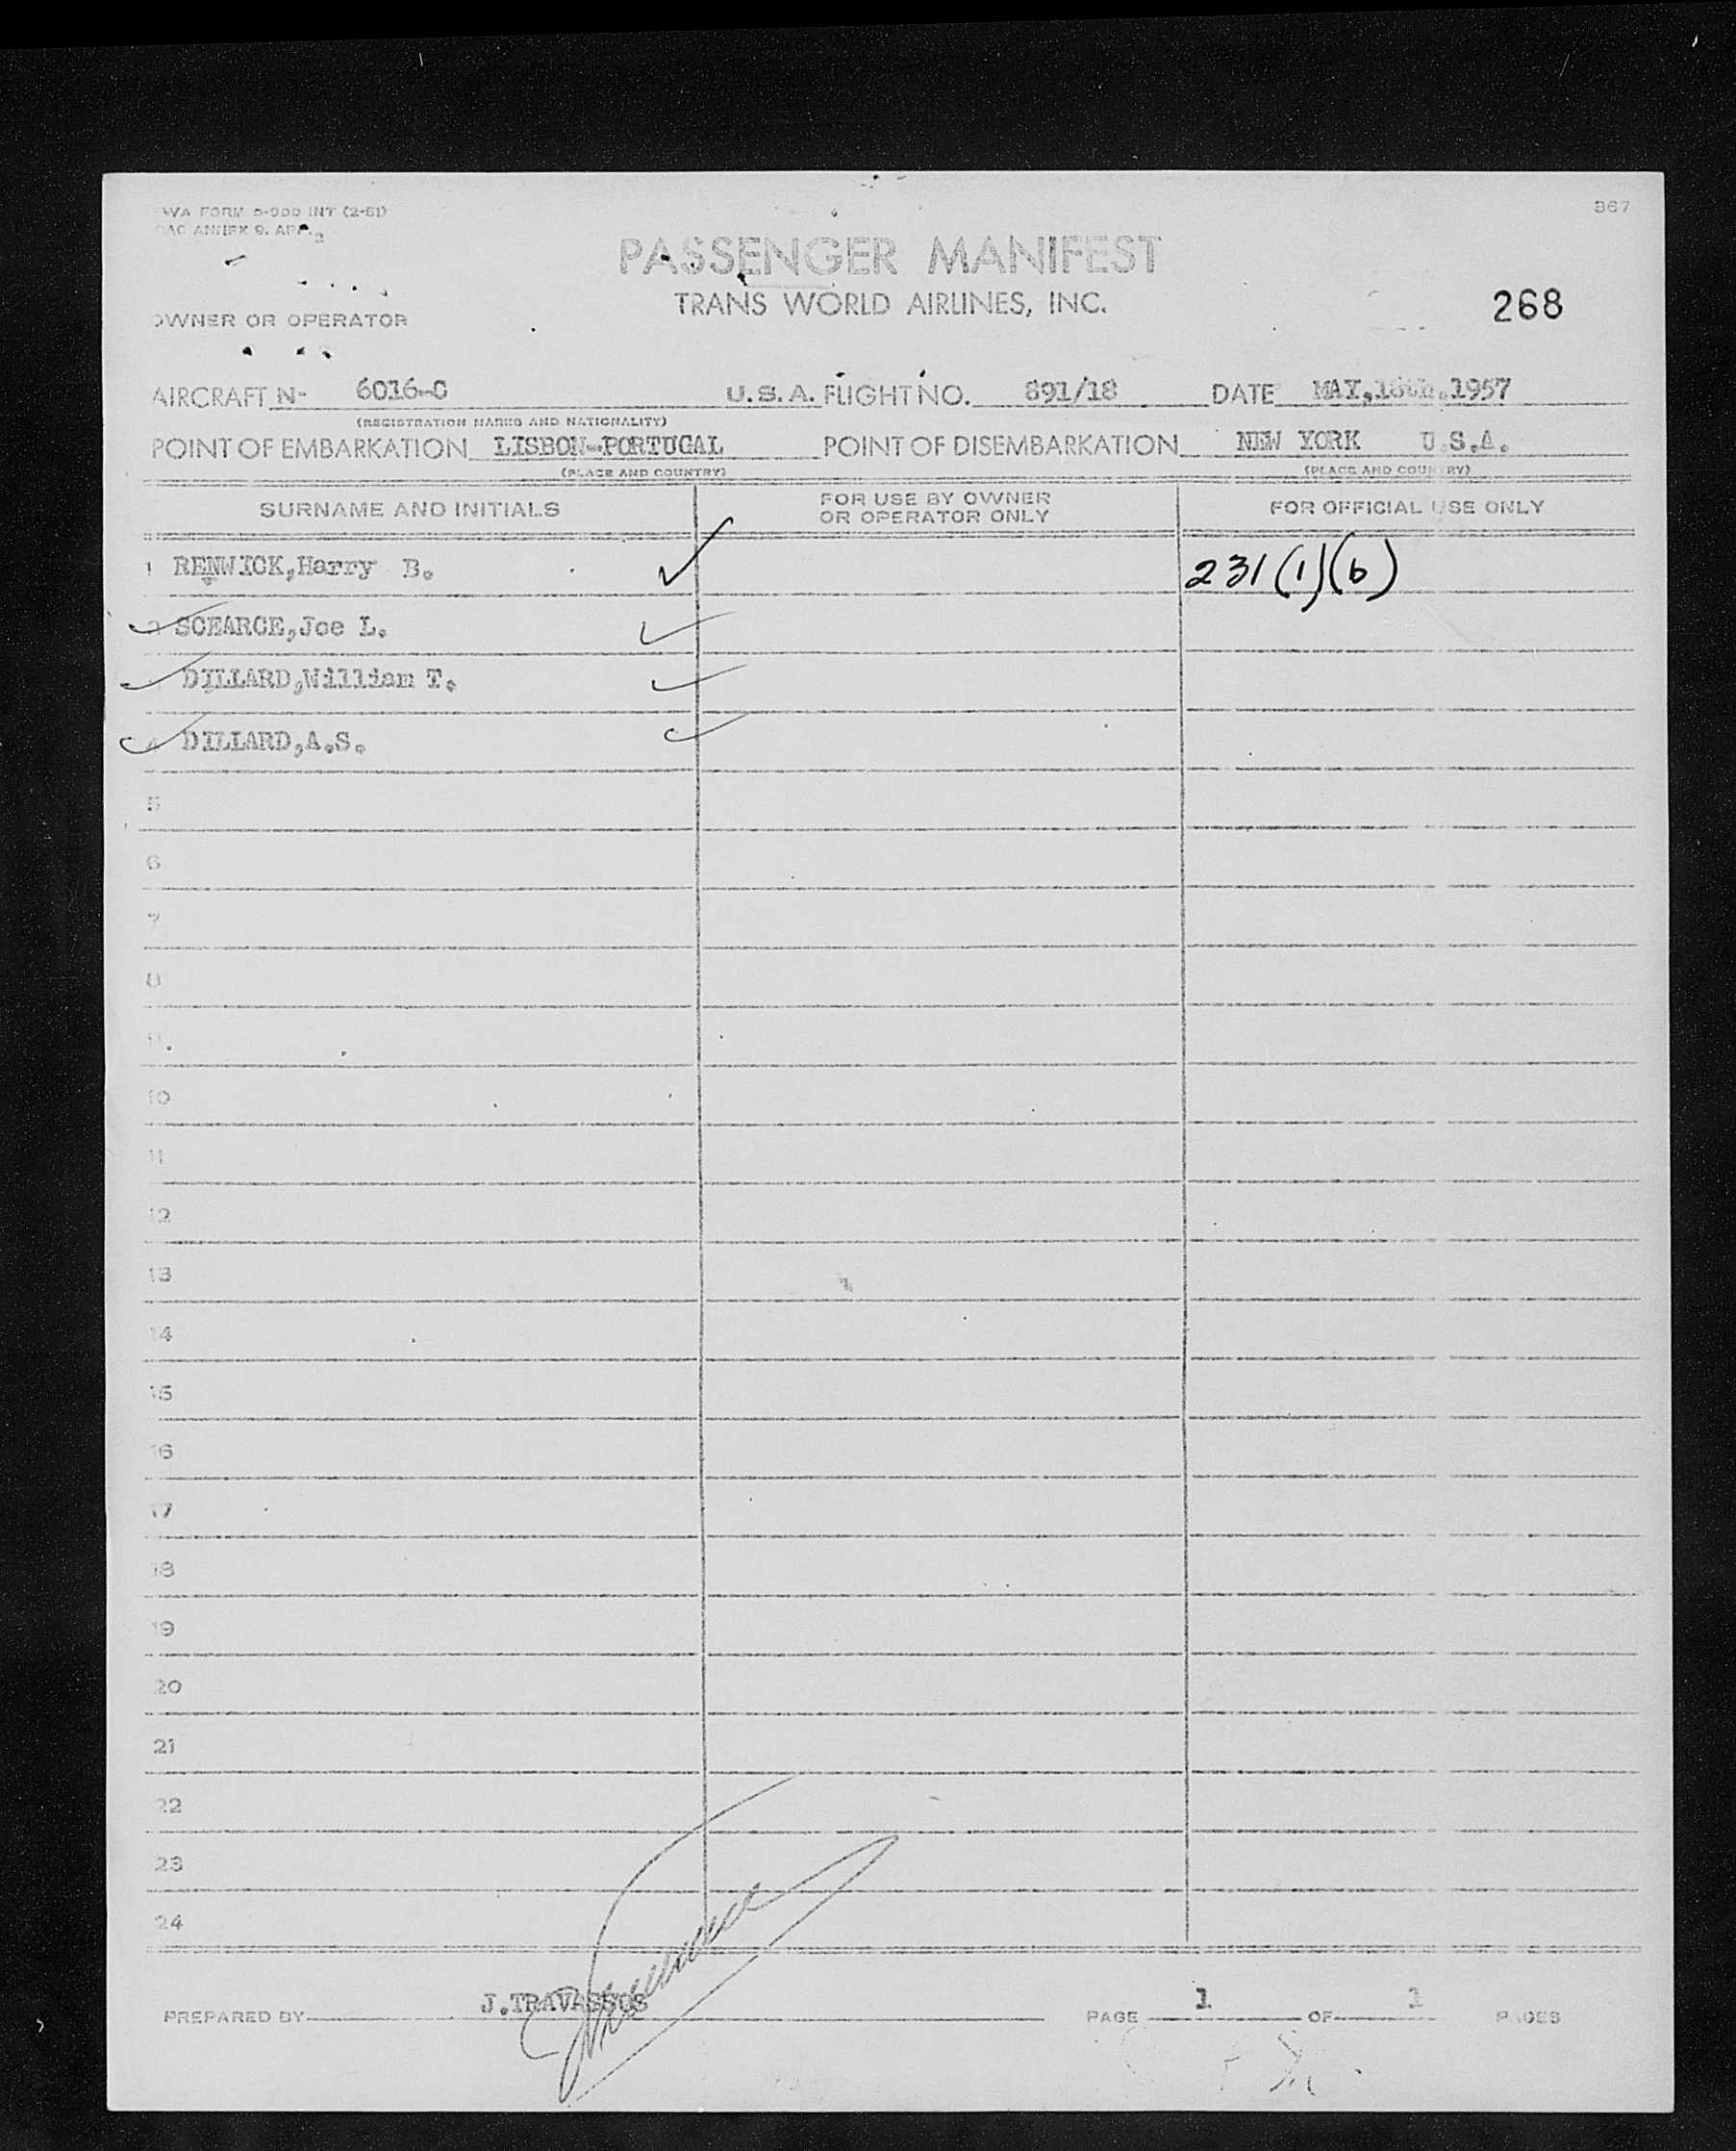 WA FORM 0-900 INT (2-51)
367
AO ANNEX 9. APP. 2
PASSENGER MANIFEST
TRANS WORLD AIRLINES, INC.
268
OWNER OR OPERATOR
AIRCRAFT N- 6016-C U.S.A. FLIGHT NO. 891/18 DATE MAY,18th.1957
(REGISTRATION MARKS AND NATIONALITY)
POINT OF EMBARKATION LISBON-PORTUGAL POINT OF DISEMBARKATION NEW YORK U.S.A.
(PLACE AND COUNTRY) (PLACE AND COUNTRY)
SURNAME AND INITIALS FOR USE BY OWNER OR OPERATOR ONLY FOR OFFICIAL USE ONLY
1 RENWICK,Harry B. ✓ 231(1)(b)
2 SCEARCE,Joe L. ✓
DILLARD,William T. ✓
4 DILLARD,A.S. ✓
5
6
7
8
9
10
11
12
13
14
15
16
17
18
19
20
21
22
23
24
PREPARED BY J.TRAVASSOS PAGE 1 OF 1 PAGES